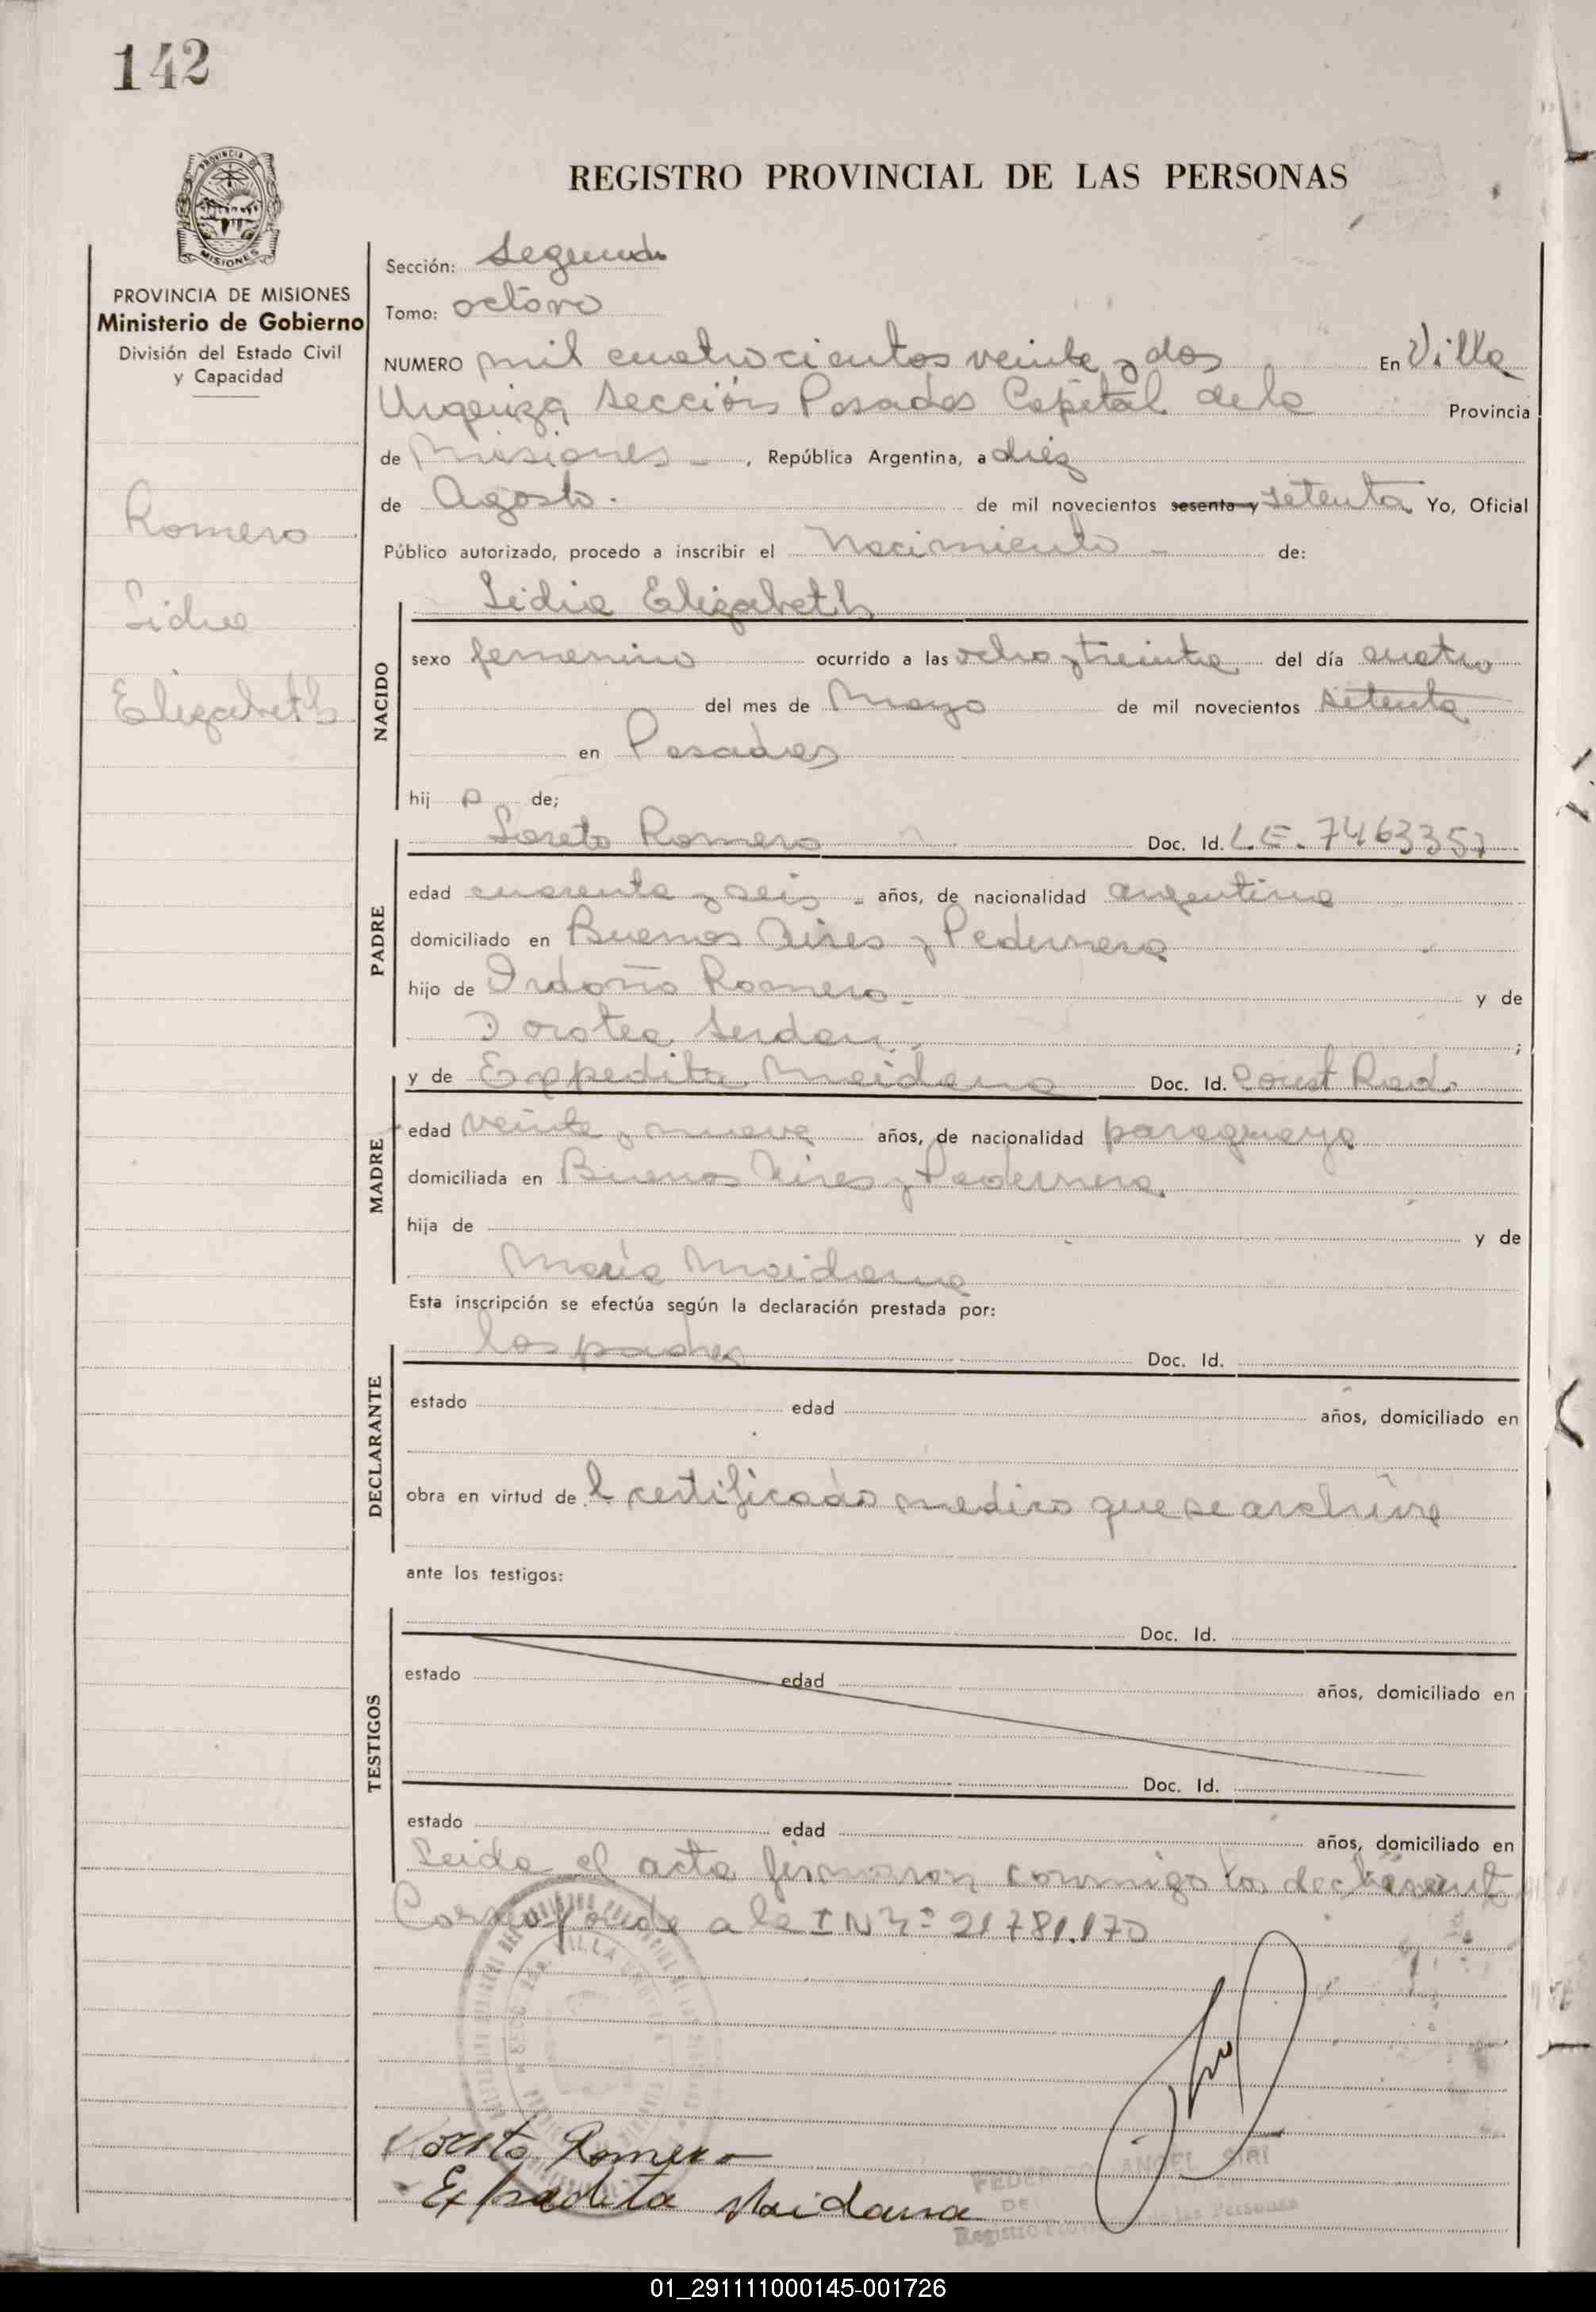 142
REGISTRO PROVINCIAL DE LAS PERSONAS
PROVINCIA DE
MISIONES
PROVINCIA DE MISIONES
Ministerio de Gobierno
División del Estado Civil
y Capacidad
Romero
Lidia
Elizabeth
Sección: Segunda
Tomo: octavo
NUMERO mil cuatrocientos veinte y dos En Villa
Urquiza Sección Posadas Capital de la Provincia
de Misiones, República Argentina, a diez
de Agosto. de mil novecientos sesenta y setenta Yo, Oficial
Público autorizado, procedo a inscribir el Nacimiento de:
Lidia Elizabeth
NACIDO
sexo femenino ocurrido a las ocho y treinta del día cuatro
del mes de Mayo de mil novecientos setenta
en Posadas
hij a de;
Loreto Romero Doc. Id. L.E. 7463357
PADRE
edad cuarenta y seis años, de nacionalidad argentina
domiciliado en Buenos Aires y Pedernera
hijo de Ordoño Romero y de
Dorotea ;
y de Expedita Maidana Doc. Id. Const Rad.
MADRE
edad veinte y nueve años, de nacionalidad paraguaya
domiciliada en Buenos Aires y Pedernera.
hija de y de
María Maidana
Esta inscripción se efectúa según la declaración prestada por:
los padres Doc. Id.
DECLARANTE
estado edad años, domiciliado en
obra en virtud de l certificado medico que se archiva
ante los testigos:
Doc. Id.
TESTIGOS
estado edad años, domiciliado en
Doc. Id.
estado edad años, domiciliado en
Leida el acta firmaron conmigo los declarant
Corresponde a la I Nº 21781.170
VILLA
Loreto Romero
Expedita Maidana
FEDERICO ANGEL SIRI
DEL
Registro Provincial de las Personas
01_291111000145-001726